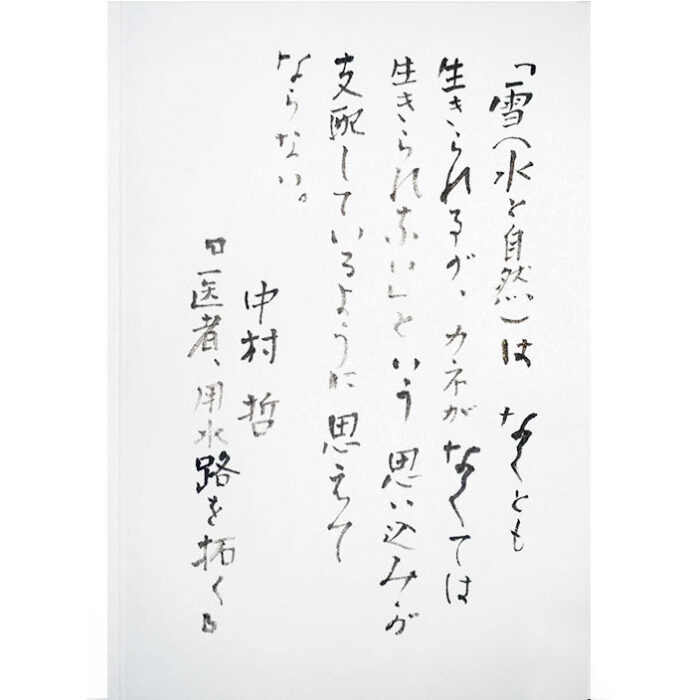 「雪(水と自然)は なくとも
生きられるが、カネがなくては
生きられない」という思い込みが
支配しているように思えて
ならない。
中村 哲
『医者、用水路を拓く』